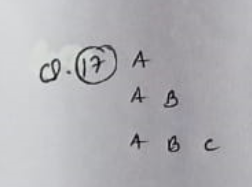 Q. 17 A
A B
A B C